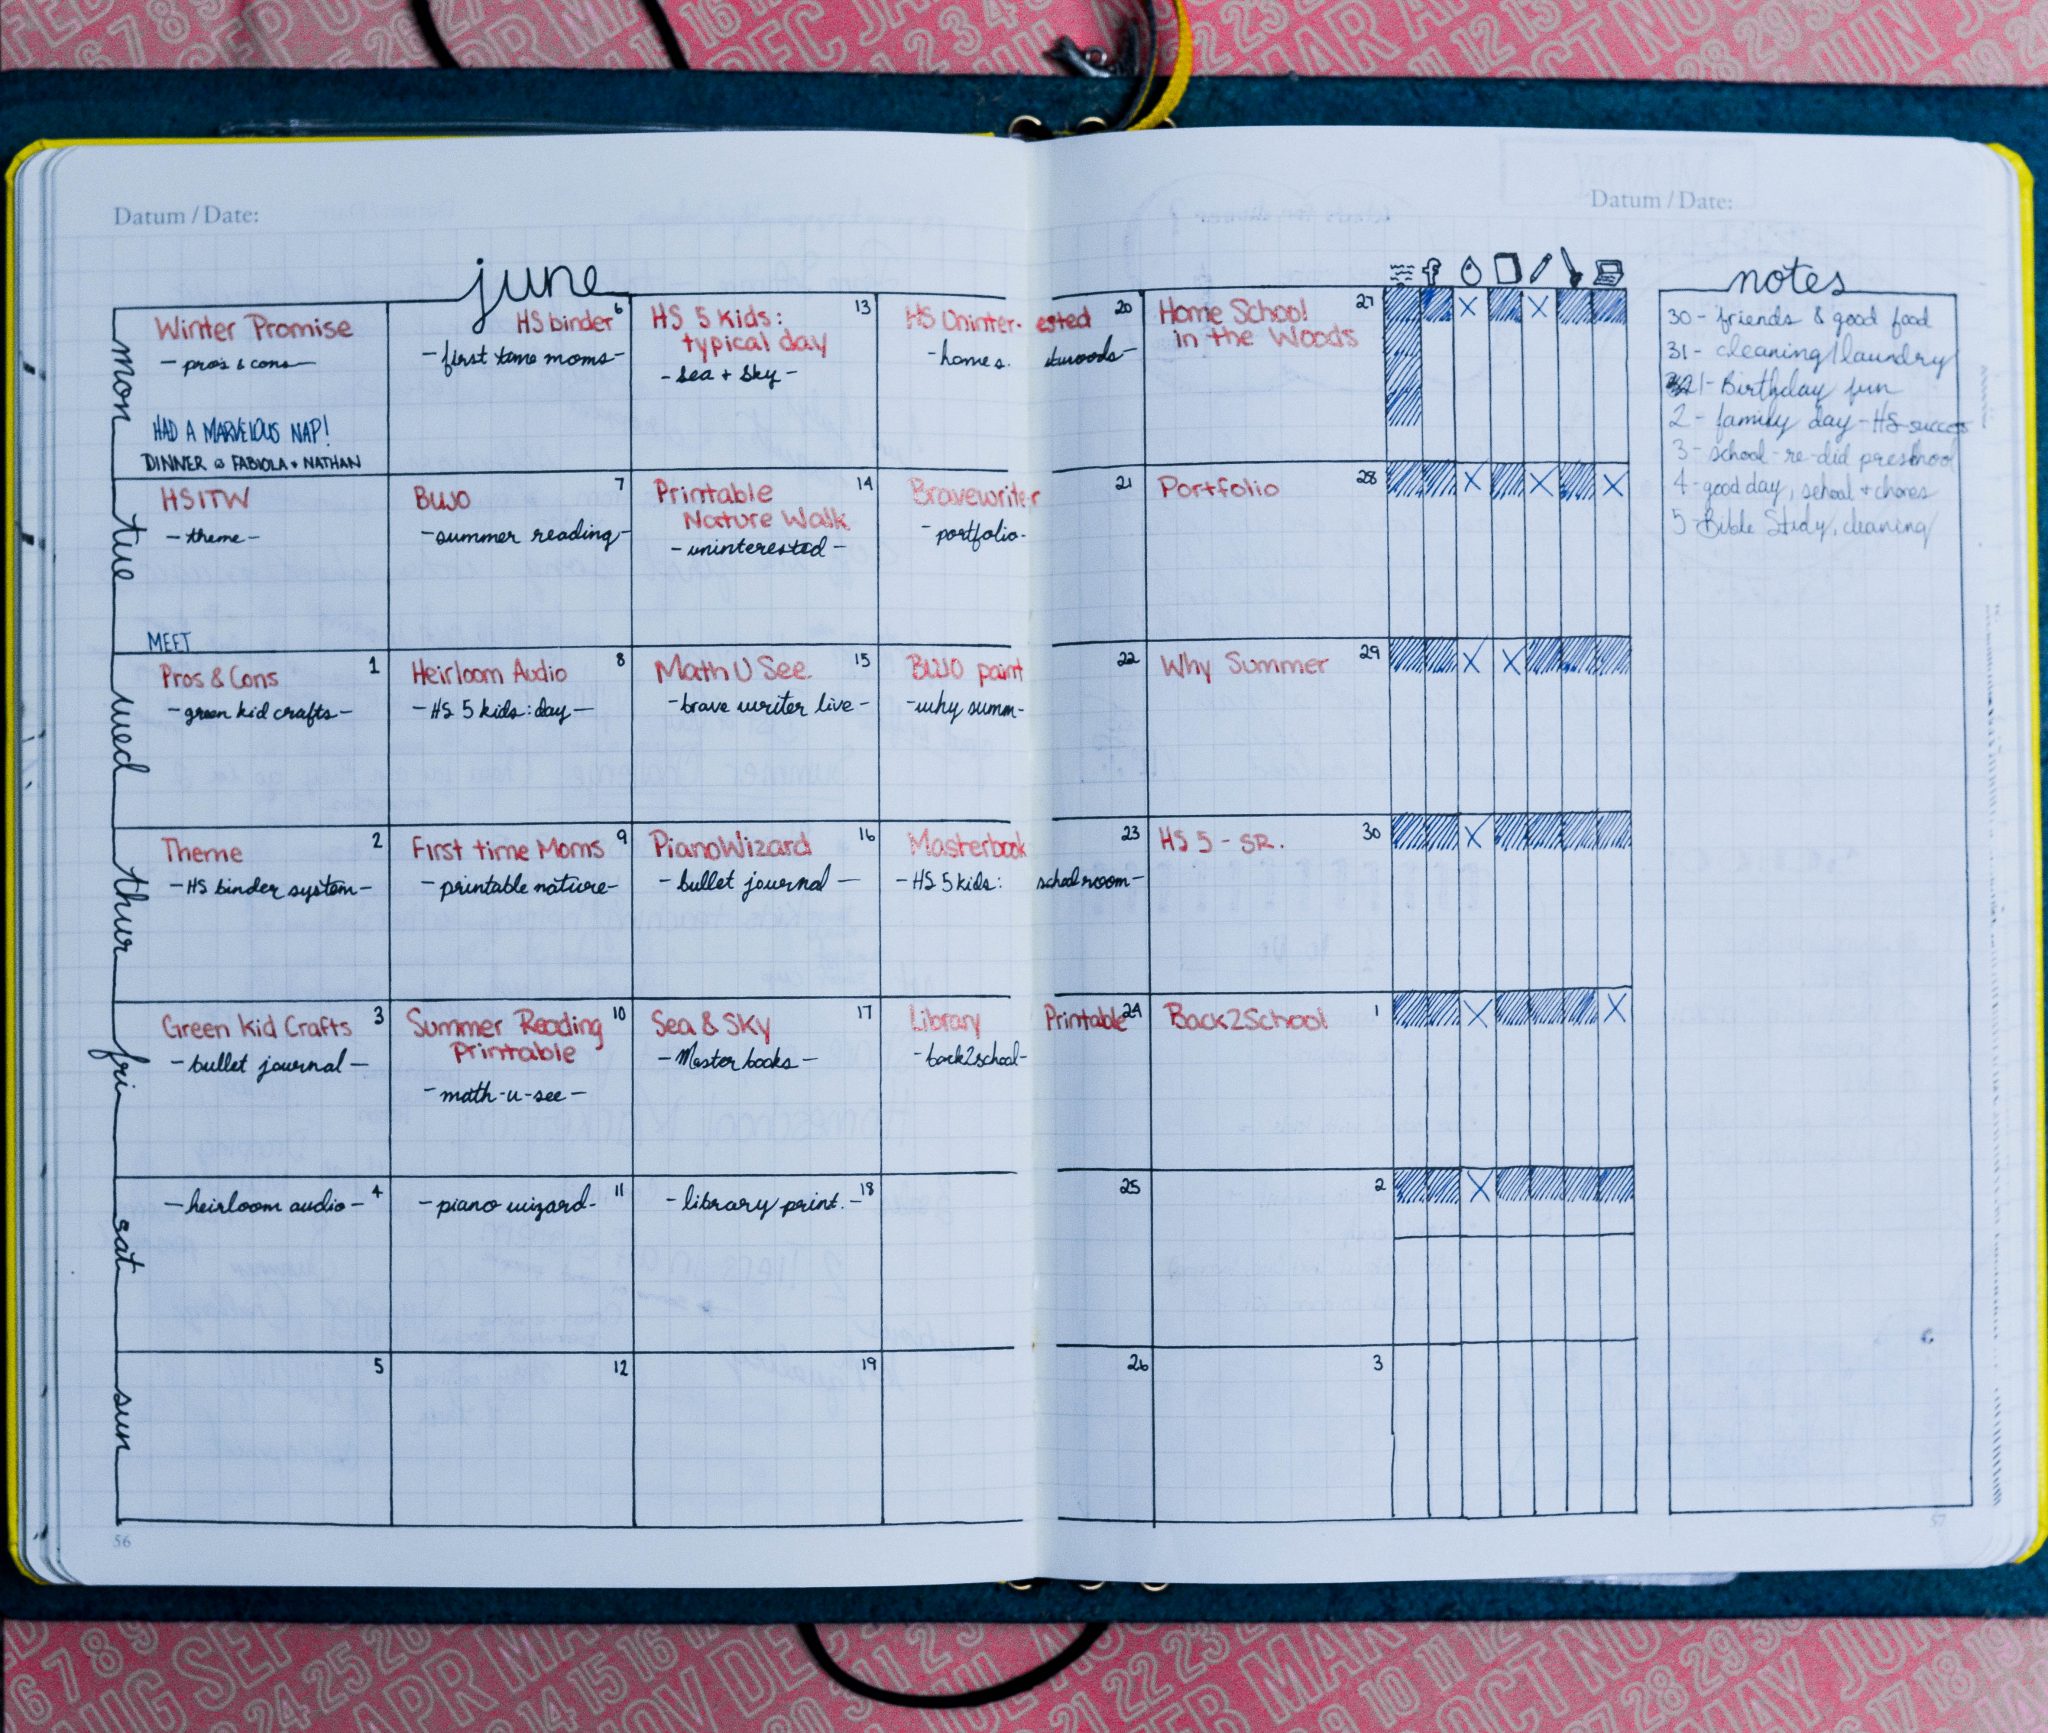 Datum / Date:
Datum / Date:
june
notes
mon
Winter Promise
- pros & cons -
HAD A MARVELOUS NAP!
DINNER @ FABIOLA + NATHAN
6
HS binder
- first time moms -
13
HS 5 Kids:
typical day
- sea + sky -
20
HS Uninter- ested
- homes. itwoods -
27
Home School
in the Woods
tue
HSITW
- theme -
MEET
7
BUJO
- summer reading -
14
Printable
Nature Walk
- uninterested -
21
Bravewriter
- portfolio -
28
Portfolio
wed
1
Pros & Cons
- green kid crafts -
8
Heirloom Audio
- HS 5 kids: day -
15
Math U See
- brave writer live -
22
BUJO paint
- why summ-
29
Why Summer
thur
2
Theme
- HS binder system -
9
First time Moms
- printable nature -
16
PianoWizard
- bullet journal -
23
Masterbook
- HS 5 kids: schoolroom -
30
HS 5 - SR.
fri
3
Green Kid Crafts
- bullet journal -
10
Summer Reading
Printable
- math-u-see -
17
Sea & Sky
- Master books -
24
Library Printable
- back2school -
1
Back2School
sat
4
- heirloom audio -
11
- piano wizard -
18
- library print. -
25
2
sun
5
12
19
26
3
30 - friends & good food
31 - cleaning/laundry
1 - Birthday fun
2 - family day - HS success
3 - school - re-did preschool
4 - good day, school + chores
5 - Bible Study, cleaning
56
57